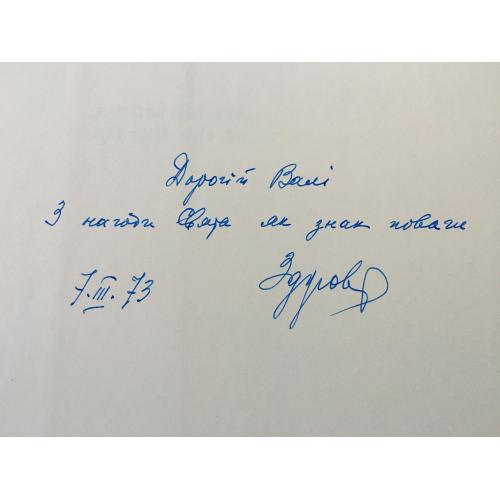 Дорогій Валі
З нагоди Свята як знак поваги
7.III.73